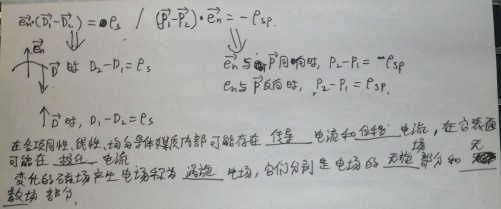 e⃗n·(D⃗1-D⃗2)=ρs / (P⃗1-P⃗2)·e⃗n=-ρsp
e⃗n
D⃗ 时 D2-D1=ρs
e⃗n与P⃗同向时, P2-P1=-ρsp
en与P⃗反向时, P2-P1=ρsp.
D⃗时, D1-D2=ρs
在各项同性、线性、均匀导体媒质内部可能存在 传导 电流和 位移 电流, 在它表面
可能在 极化 电流
变化的磁场产生电场称为 涡旋 电场, 它们分别是电场的 无旋 部分和 无
散场 部分.